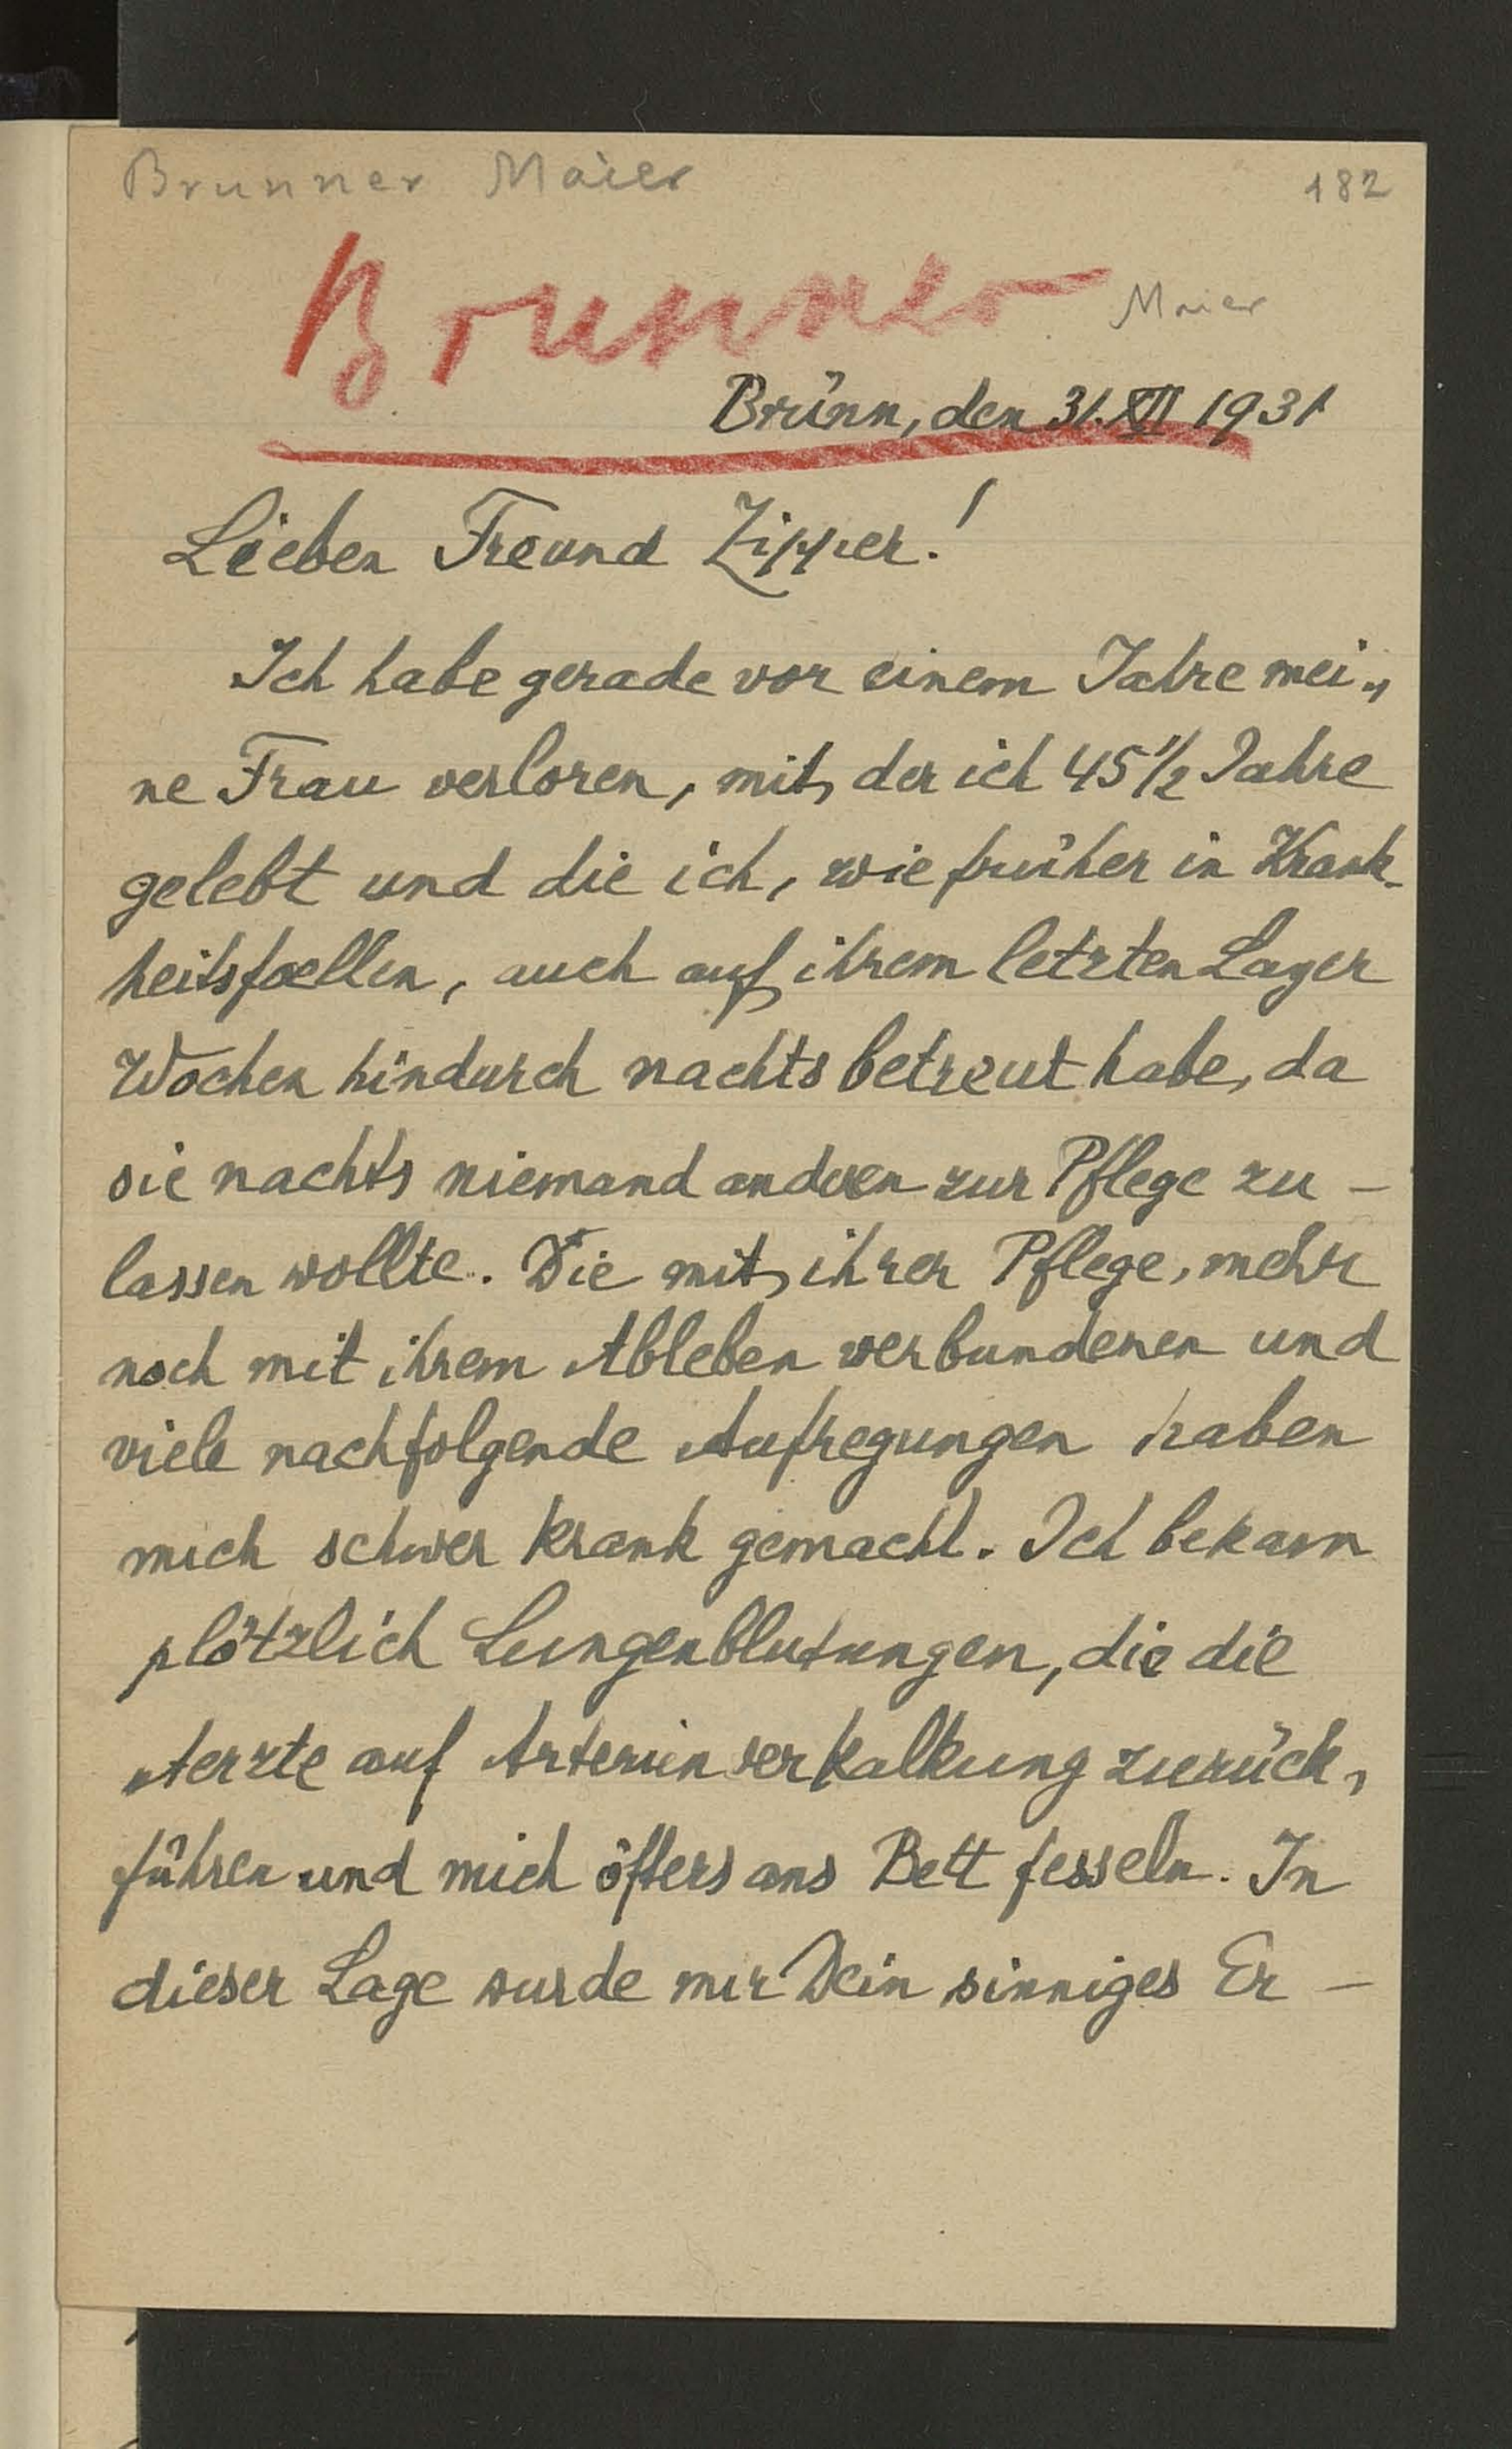 Brunner Maier
182
Brunner Maier
Brünn, den 31. XII 1931
Lieber Freund Zipper!
Ich habe gerade vor einem Jahre mei„
ne Frau verloren, mit der ich 45 1/2 Jahre
gelebt und die ich, wie früher in Krank-
heitsfaellen, auch auf ihrem letzten Lager
Wochen hindurch nachts betreut habe, da
sie nachts niemand anderen zur Pflege zu -
lassen wollte. Die mit ihrer Pflege, mehr
noch mit ihrem Ableben verbundenen und
viele nachfolgende Aufregungen haben
mich schwer krank gemacht. Ich bekam
plötzlich Lungenblutungen, die die
Aerzte auf Arterienverkalkung zurück,
führen und mich öfters ans Bett fesseln. In
dieser Lage wurde mir Dein sinniges Er -